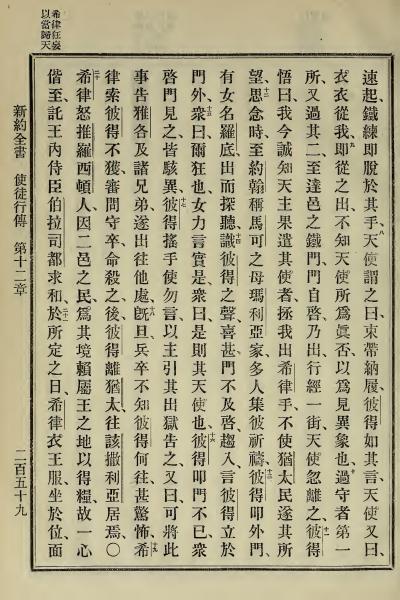 希律狂妄
以當歸天
速起、鐵練即脫於其手、八天使謂之曰、束帶納履、彼得如其言、天使又曰、
衣衣從我、九即從之出、不知天使所爲眞否、以爲見異象也、十過守者第一
所、又過其二、至達邑之鐵門、門自啓、乃出行經一街、天使忽離之、十一彼得
悟曰、我今誠知天主果遣其使者、拯我出希律手、不使猶太民遂其所
望、十二思念時、至約翰稱馬可之母瑪利亞家、多人集彼祈禱、十三彼得叩外門、
有女名羅底、出而探聽、十四識彼得之聲、喜甚、門不及啓、趨入言彼得立於
門外、十五衆曰、爾狂也、女力言實是、衆曰、是則其天使也、十六彼得叩門不已、衆
啓門見之、皆駭異、十七彼得搖手使勿言、以主引其出獄告之、又曰、可將此
事告雅各及諸兄弟、遂出往他處、十八旣旦、兵卒不知彼得何往、甚驚怖、十九希
律索彼得不獲、審問守卒、命殺之、後彼得離猶太、往該撒利亞居焉、〇
二十希律怒推羅西頓人、因二邑之民、爲其境賴屬王之地以得糧、故一心
偕至、託王內侍臣伯拉司都求和、二一於所定之日、希律衣王服、坐於位、面
新約全書　使徒行傳　第十二章
二百五十九